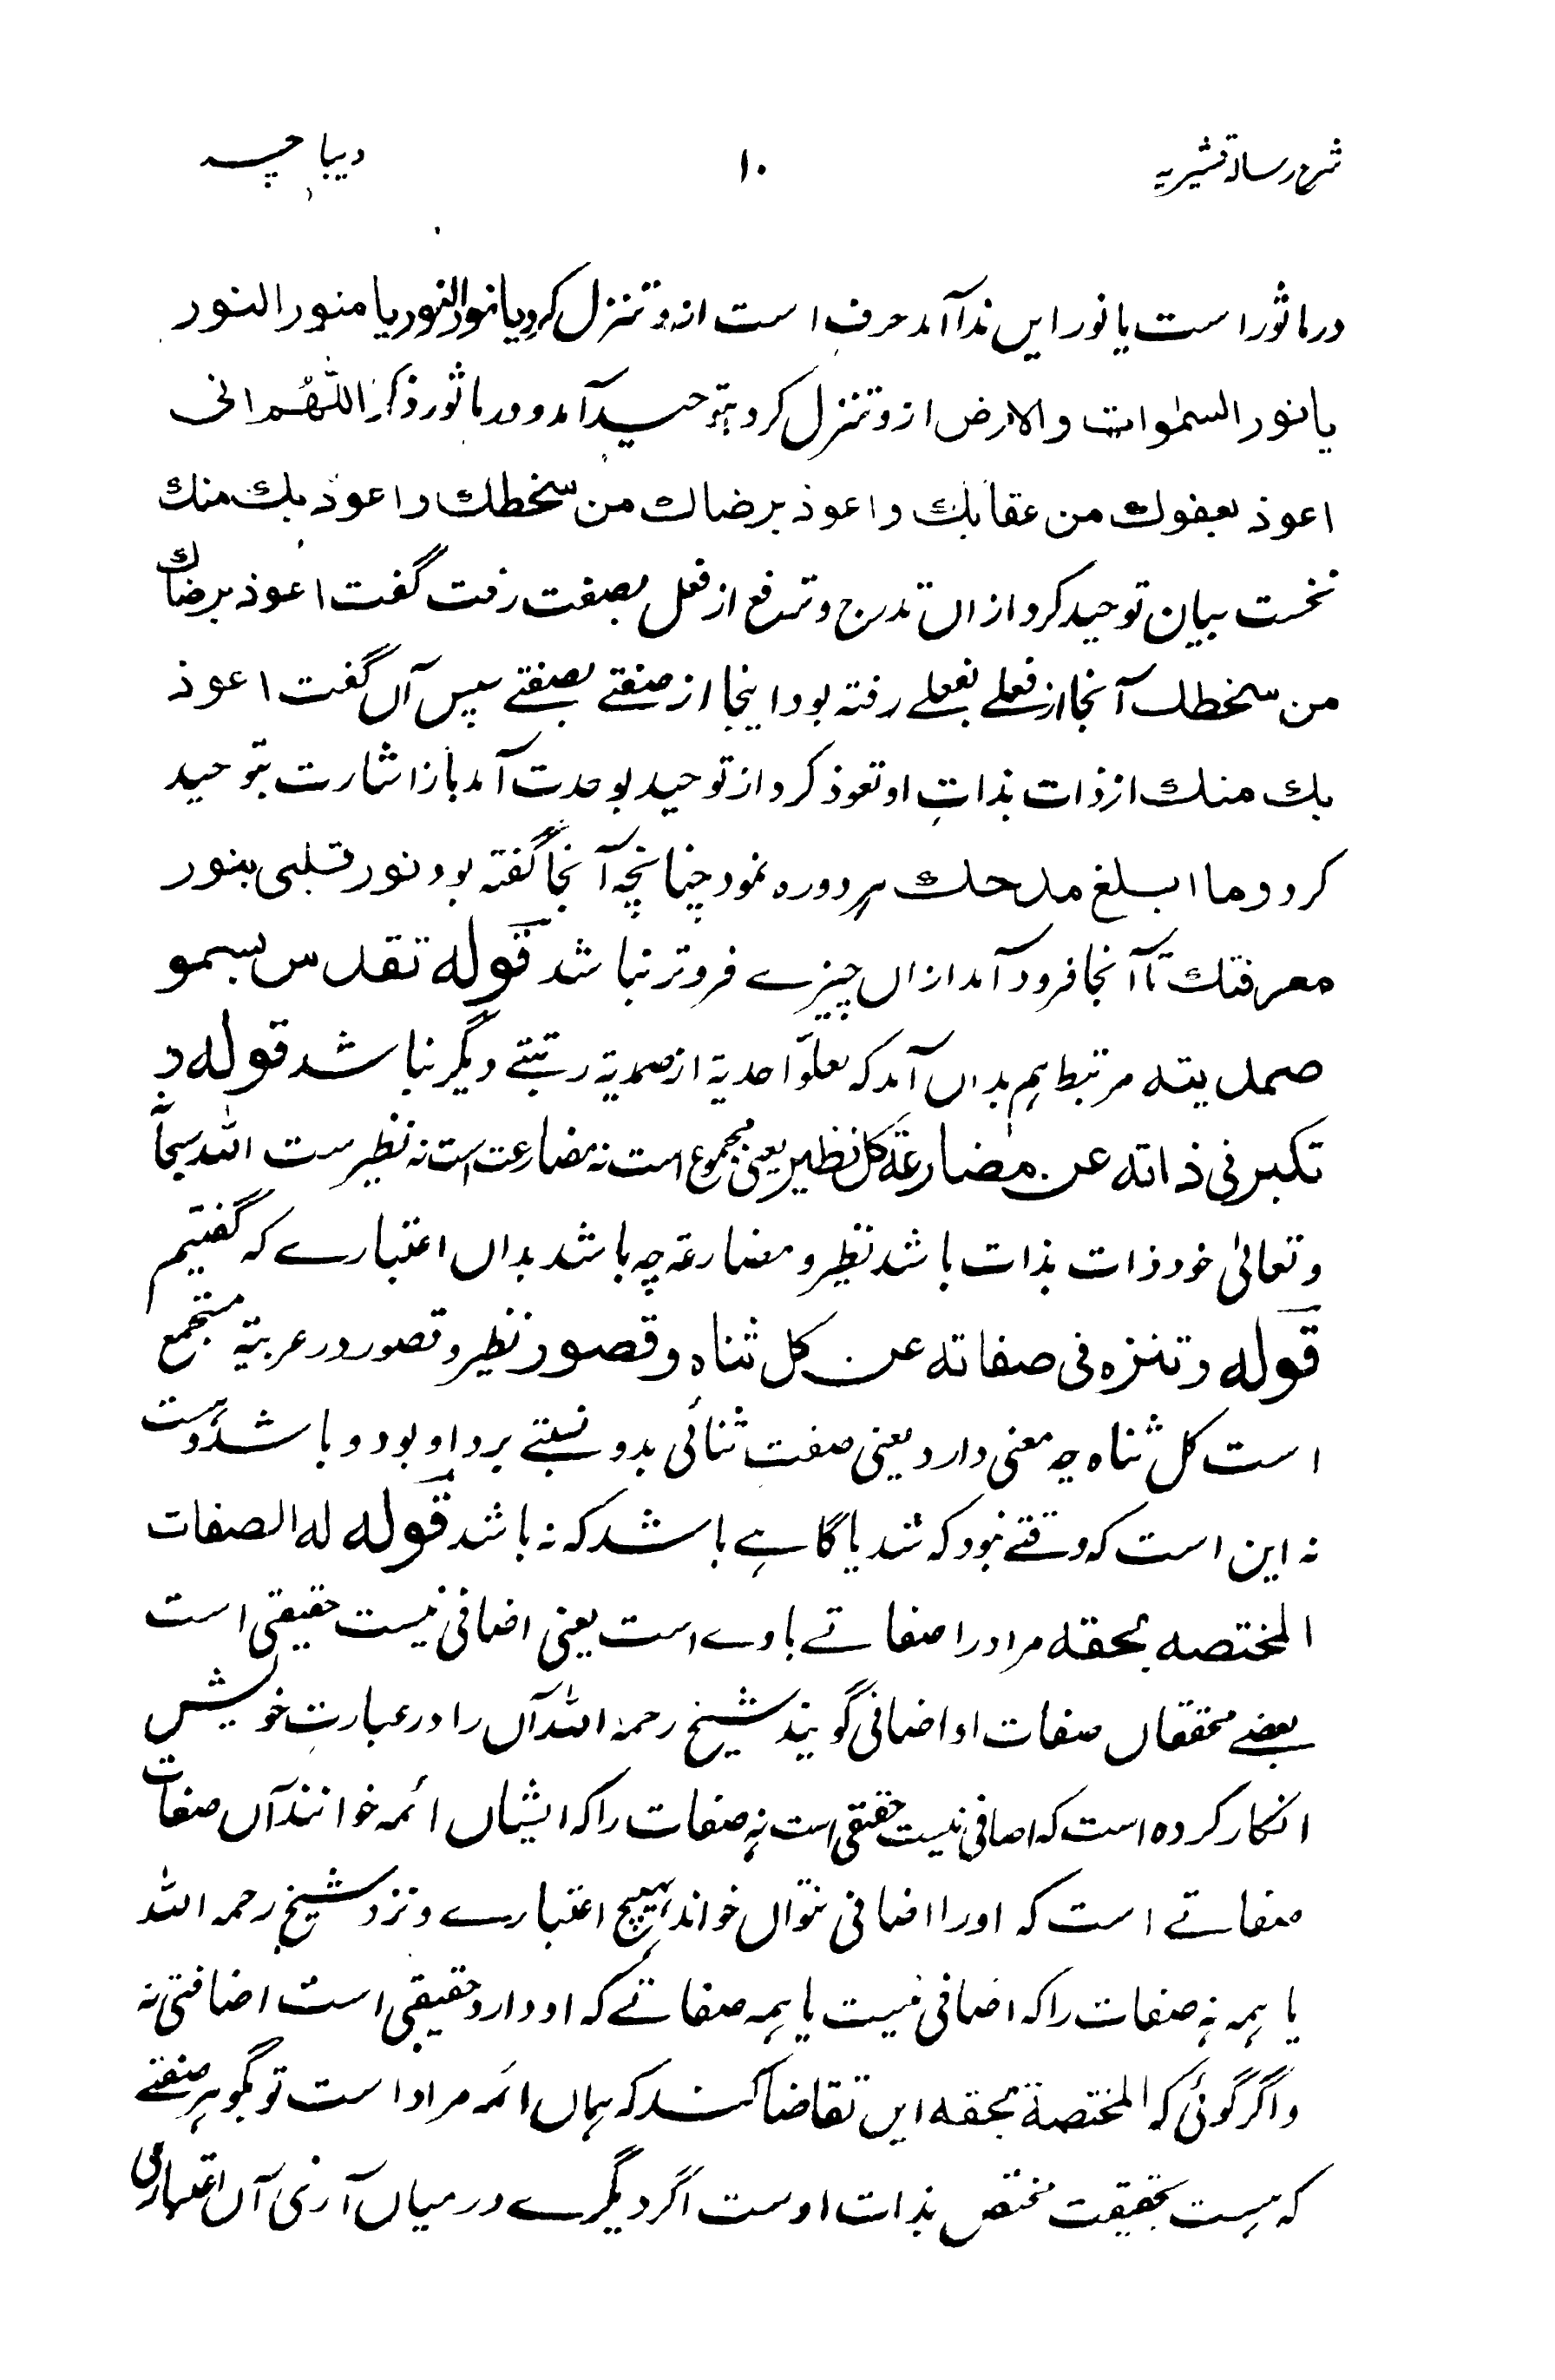 شرح رسالۃ قشیریہ ۱۰ دیباچہ
در ماثور است یا نور ایں ندا آمد حرف است ازو تنزل کرد یا نور النور یا منور النور
یا نور السمٰوات والارض ازو تنزل کرد بتوحید آمد و در ماثور ذکر اللّٰھُم انی
اعوذ بعفوك من عقابك واعوذ برضاك من سخطك واعوذ بك منك
نخست بیان توحید کرد ازاں تدرج و ترفع از فعل بصفت رفت گفت اعوذ برضاك
من سخطك آنجا از فعلے بفعلے رفتہ بود اینجا از صفتے بصفتے سپس آں گفت اعوذ
بك منك از ذات بذاتِ او تعوذ کرد از توحید بوحدت آمد باز اشارت بتوحید
کرد و ما ابلغ مدحك ہر دو رہ نمود چنانچہ آنجا گفتہ بود نور قلبی بنور
معرفتك تا آنجا فرود آمد ازاں چیزے فروتر نباشد قولہ تقدس بسمو
صمدیتہ مرتبط ہم بداں آمد کہ بعلوّ احدیۃ از صمدیۃ رتبتے دیگر نباشد قولہ و
تکبر فی ذاتہ عن مضارعۃ کل نظیر یعنی مجموع است نہ مضارعت است نہ نظیر ست اللہ سبحانہ
و تعالیٰ خود ذات بذات باشد نظیر و مضارعہ چہ باشد بداں اعتبارے کہ گفتیم
قولہ وتنزہ فی صفاتہ عن کل تناہ وقصور نظیر و قصور در عربیۃ مستجمع
است کل تناہ چہ معنی دارد یعنی صفت ثنائی بدو نسبتے برد او بود و باشد و ست
نہ این است کہ وقتے نبود کہ شد یا گاہے باشد کہ نہ باشد قولہ لہ الصفات
المختصہ بحقہ مراد را صفاتے باوے است یعنی اضافی نیست حقیقی است
بعضے محققاں صفات او اضافی گویند شیخ رحمہ اللہ آں را در عبارتِ خویش
انکار کردہ است کہ اضافی نیست حقیقی است نہ صفات را کہ ایشاں ائمہ خوانند آں صفات
صفاتے است کہ اورا اضافی نتواں خواند بہیچ اعتبارے و نزد شیخ رحمہ اللہ
یا ہمہ نہ صفات را کہ اضافی نیست یا ہمہ صفاتے کہ او دارد حقیقی است اضافتی نہ
و اگر گوئی کہ المختصۃ بحقہ ایں تقاضا کند کہ ہماں ائمہ مراد است تو بگو ہر صفتے
کہ ہست بحقیقت مختص بذات اوست اگر دیگرے درمیاں آرنی آں اعتباری